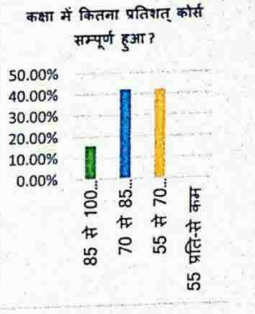 कक्षा में कितना प्रतिशत् कोर्स
सम्पूर्ण हुआ ?
50.00%
40.00%
30.00%
20.00%
10.00%
0.00%
85 से 100...
70 से 85...
55 से 70...
55 प्रति-से कम